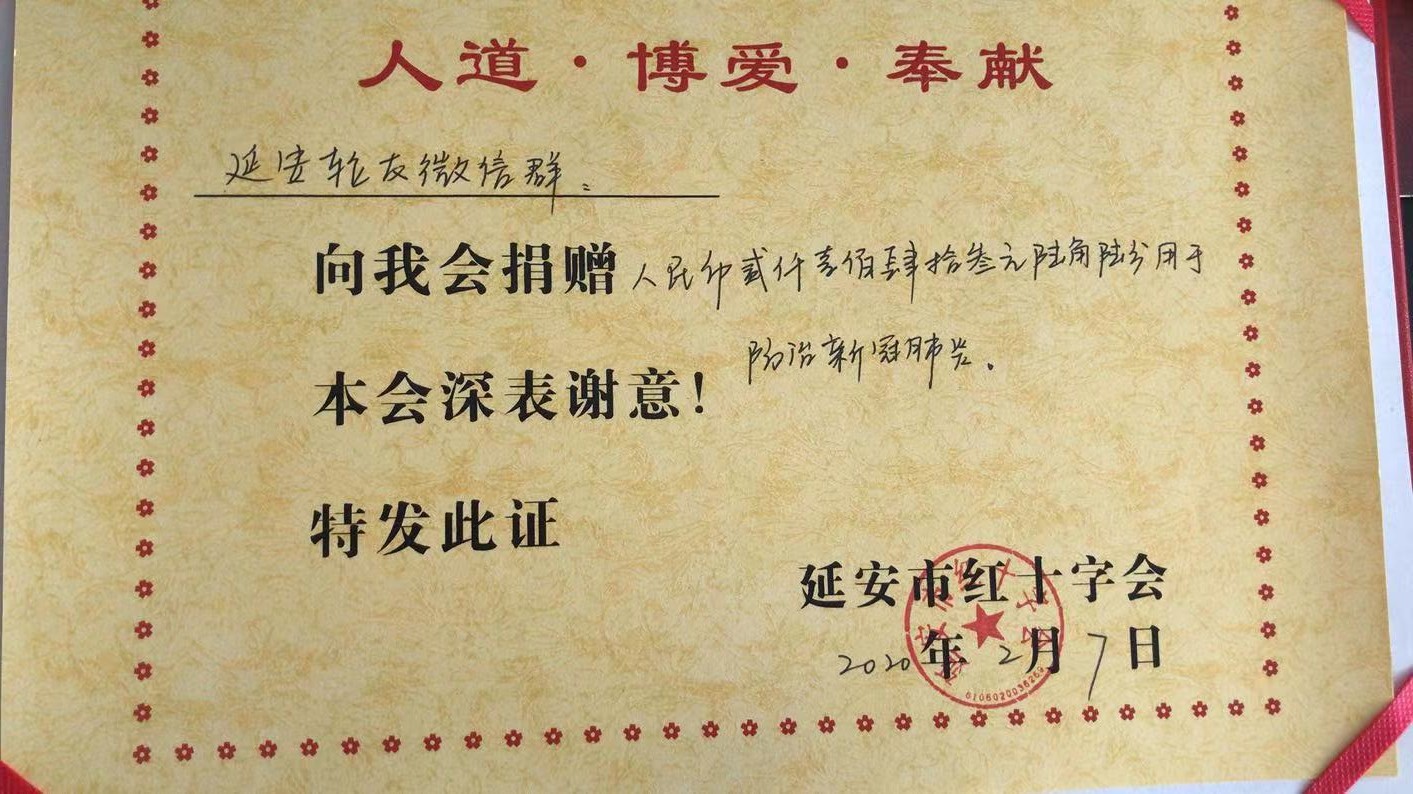 人道·博爱·奉献
延安轮友微信群：
向我会捐赠人民币贰仟壹佰肆拾叁元陆角陆分用于
防治新冠肺炎。
本会深表谢意！
特发此证
延安市红十字会
2020年2月7日